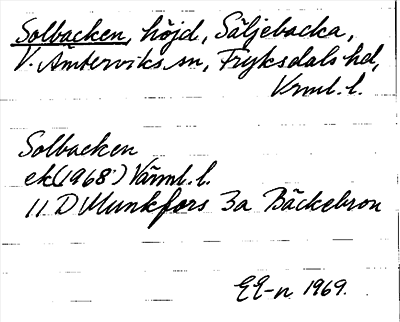 Solbacken, höjd, Säljebacka,
V. Ämterviks sn, Fryksdals hd,
Vrml. l.
Solbacken
ek(1968) Värml. l.
11 D Munkfors 3a Bäckebron
EE-n 1969.